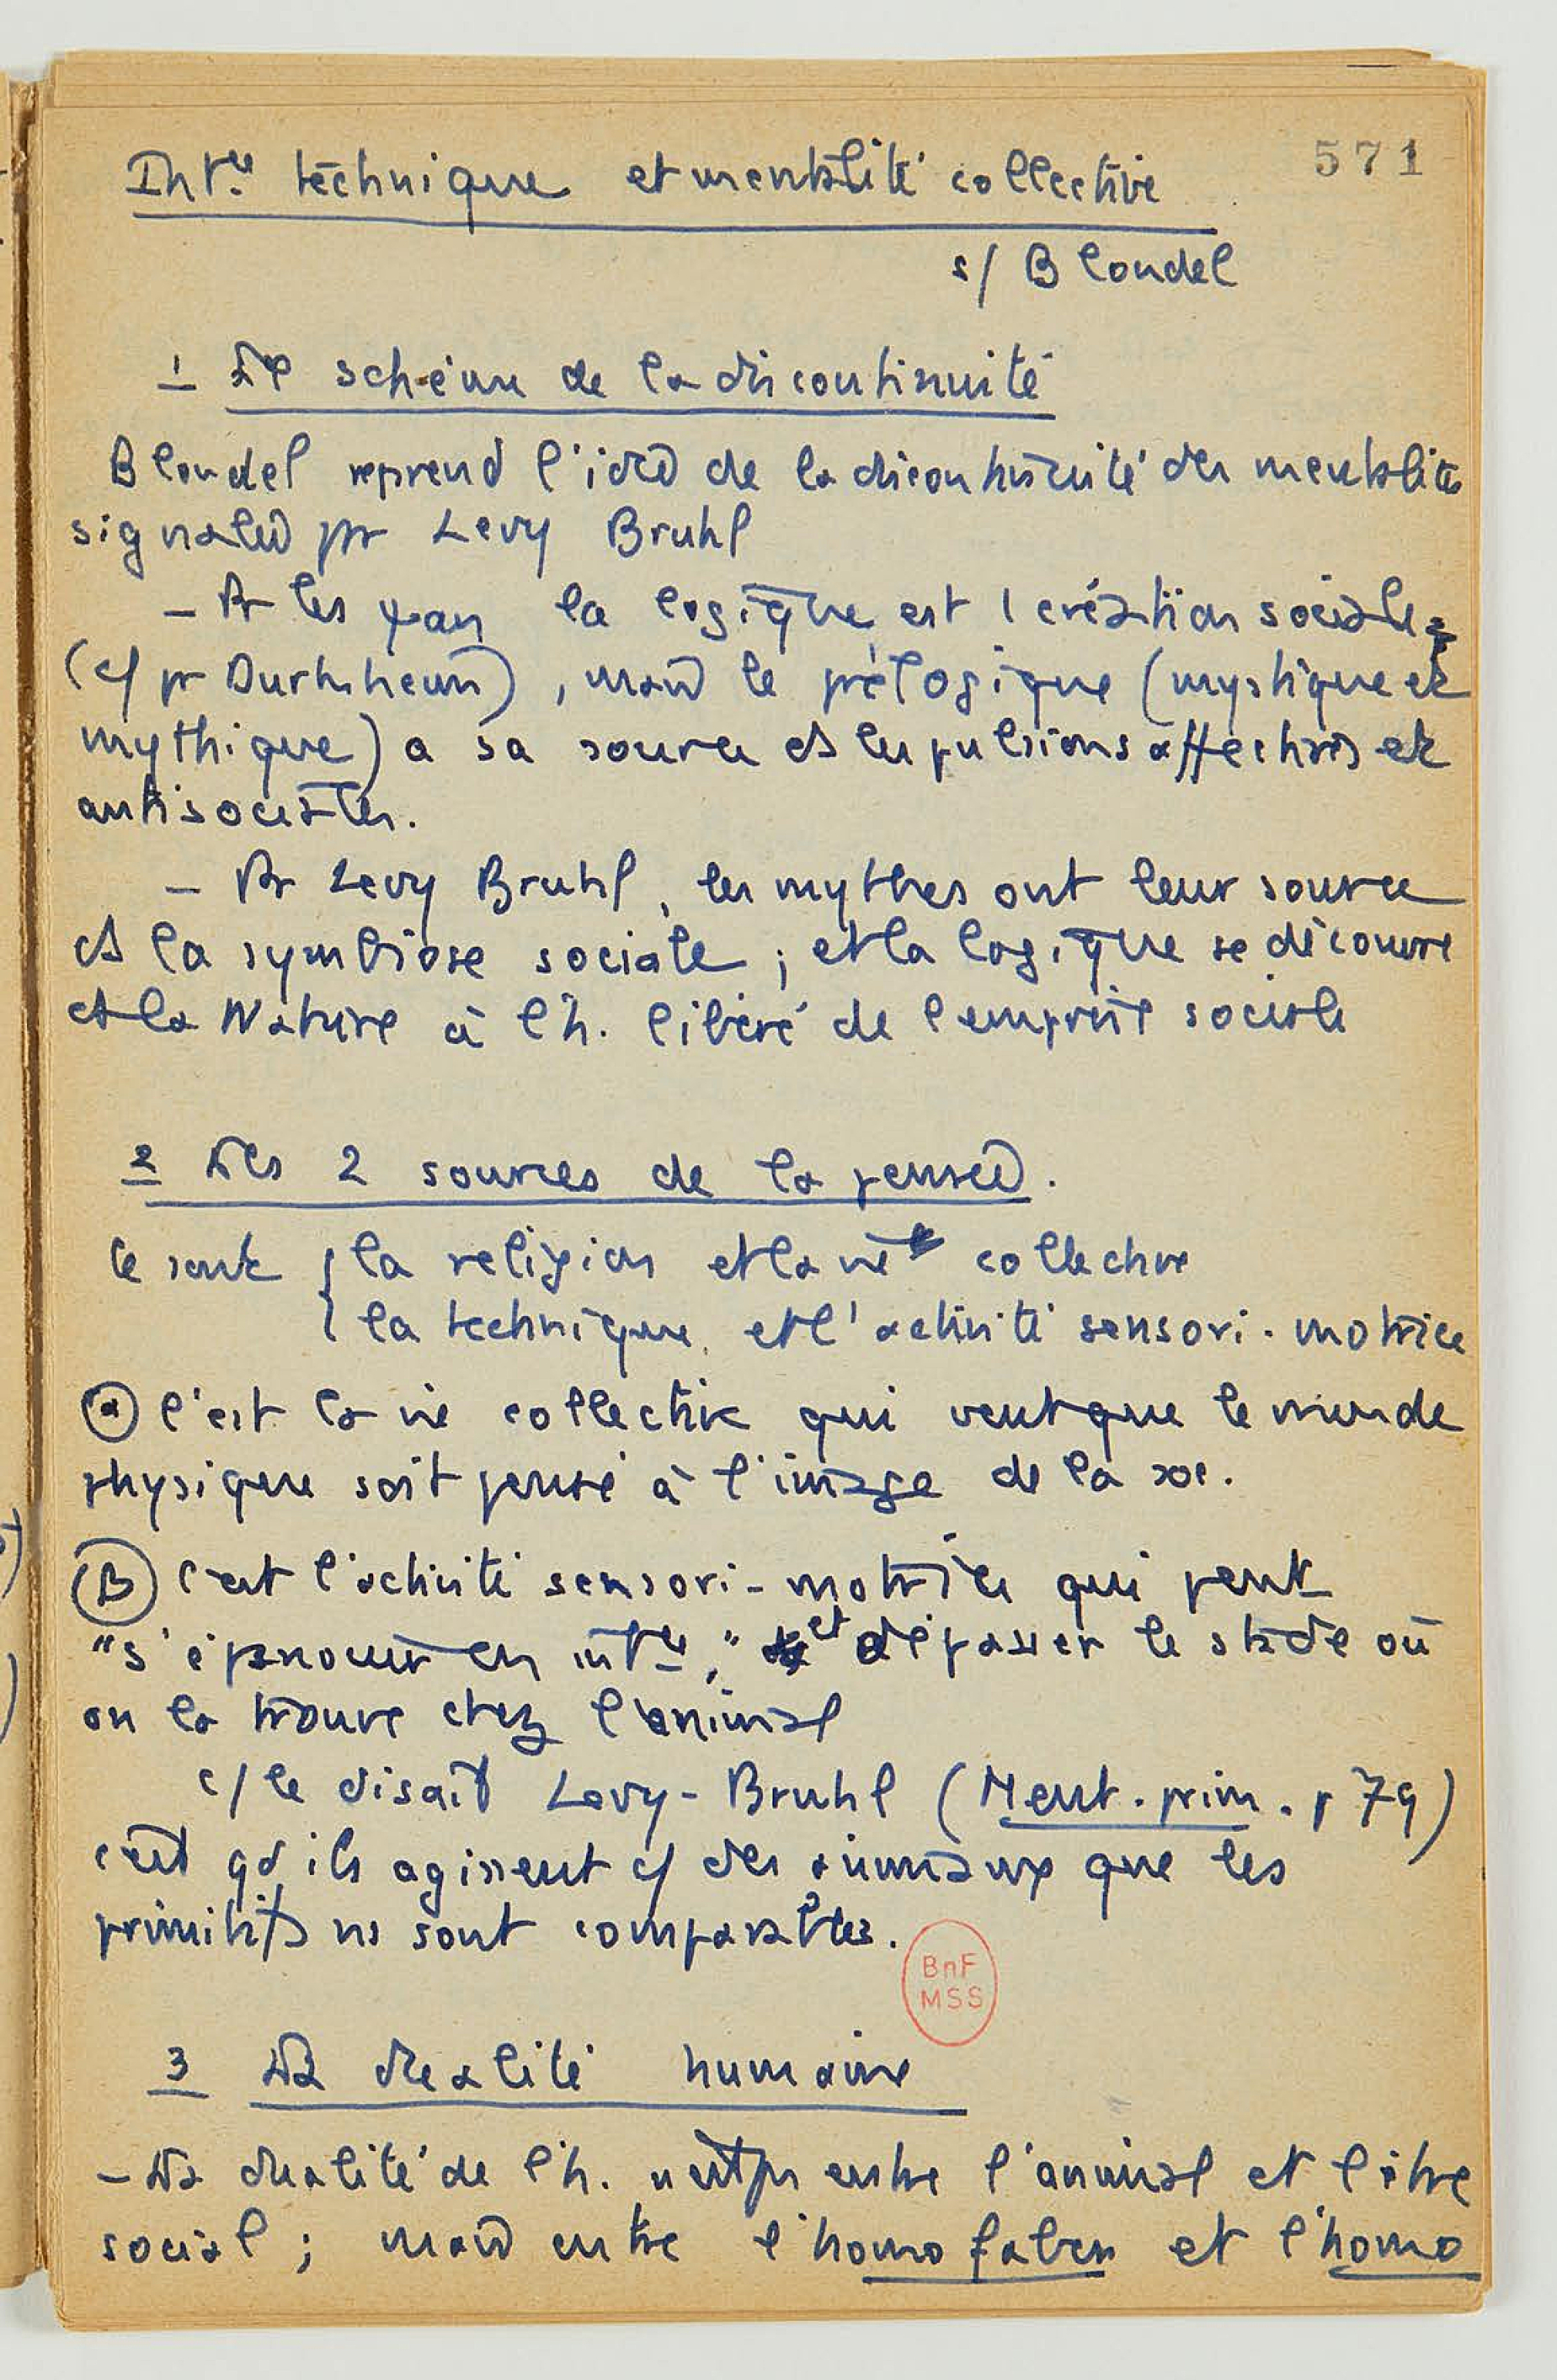 571
Int.ce technique et mentalité collective
s/ Blondel
1 Le schéma de la discontinuité
Blondel reprend l'idée de la discontinuité des mentalités
signalée pr Levy Bruhl
- Pr les la logique est 1 création sociale
(c/ pr Durkheim), mais le prélogique (mystique et
mythique) a sa source ds les pulsions affectives et
antisociales.
- Pr Levy Bruhl, les mythes ont leur source
ds la symbiose sociale ; et la logique se découvre
ds la Nature à l'h. libéré de l'emprise sociale
2 Les 2 sources de la pensée.
Ce sont { la religion et la vie collective
{ la technique et l'activité sensori-motrice
(α) C'est la vie collective qui veut que le monde
physique soit pensé à l'image de la soc.
(B) C'est l'activité sensori-motrice qui peut
"s'épanouir en int.ce," et dépasser le stade où
on la trouve chez l'animal
c/ le disait Levy-Bruhl (Ment. prim. p 79)
c'est qd ils agissent c/ des animaux que les
primitifs ns sont comparables.
BnF
MSS
3 La dualité humaine
- La dualité de l'h. n'est ps entre l'animal et l'être
social ; mais entre l'homo faber et l'homo